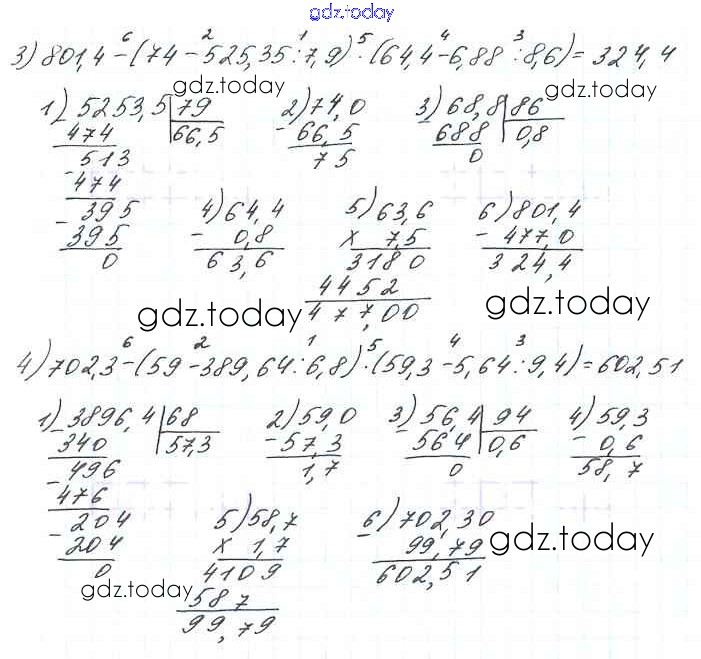 gdz.today
3) 801,4 - (74 - 525,35 : 7,9) · (64,4 - 6,88 : 8,6) = 324,4
6 2 1 5 4 3
gdz.today gdz.today gdz.today
1) 5253,5 | 79 2) 74,0 3) 68,8 | 86
474 66,5 - 66,5 688 0,8
513 75 0
474
395 4) 64,4 5) 63,6 6) 801,4
395 - 0,8 x 7,5 - 477,0
0 63,6 3180 324,4
4452
477,00
gdz.today gdz.today
4) 702,3 - (59 - 389,64 : 6,8) · (59,3 - 5,64 : 9,4) = 602,51
6 2 1 5 4 3
1) 3896,4 | 68 2) 59,0 3) 56,4 | 94 4) 59,3
340 57,3 - 57,3 564 0,6 - 0,6
496 1,7 0 58,7
476
204 5) 58,7 6) 702,30
204 x 1,7 - 99,79
0 4109 602,51
587
99,79
gdz.today gdz.today